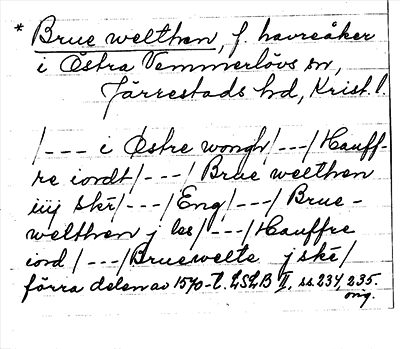 * Bruewelthen, f. havreåker
i Östra Vemmerlövs sn,
Järrestads hd, Krist. l.
/--- i Østre wongh/---/Hauff-
re iordt/---/Brue welthen
iiij skē/---/Eng/---/Brue-
welthen j les/---/Hauffre
iord/---/Bruewelte j skē/
förra delen av 1570-t. LSLB II, ss. 234, 235.
orig.